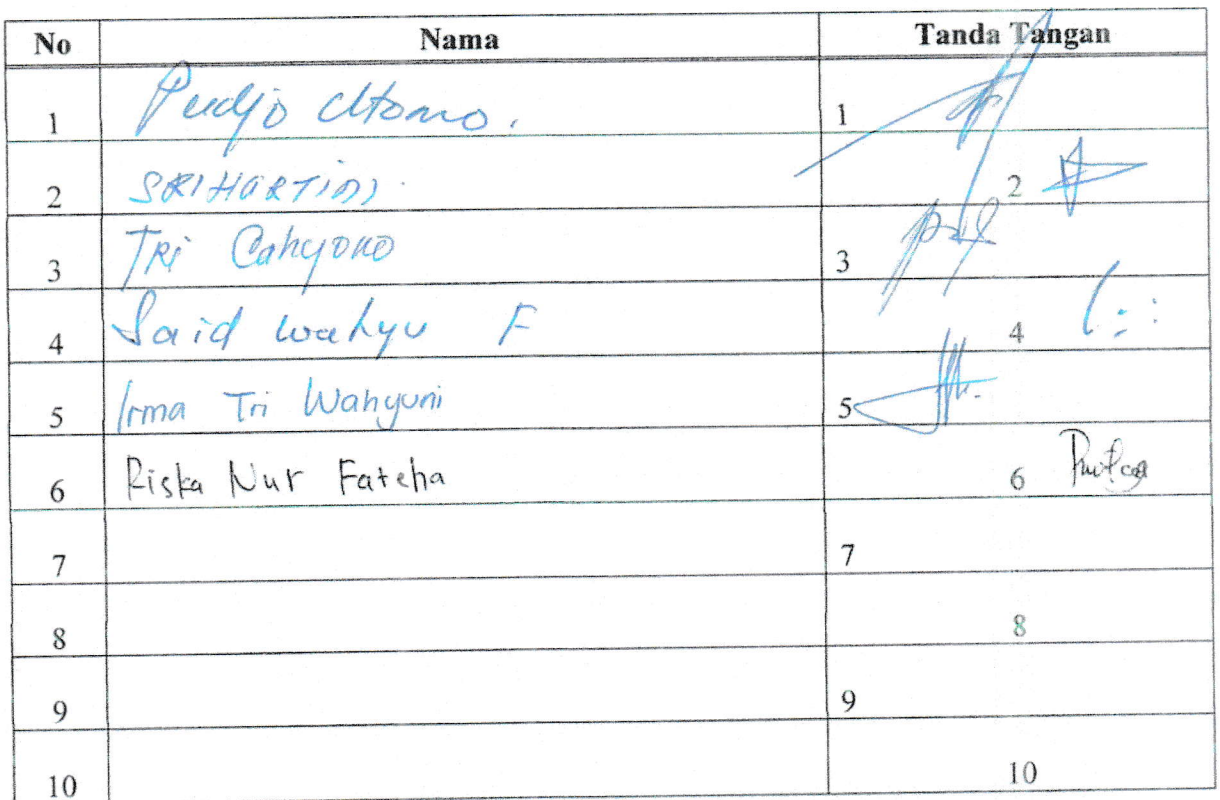 No Nama Tanda Tangan
1 Pudjo Utomo. 1
2 SRIHARTINI 2
3 TRi Cahyono 3
4 Said wahyu F 4
5 Irma Tri Wahyuni 5
6 Riska Nur Fateha 6
7 7
8 8
9 9
10 10